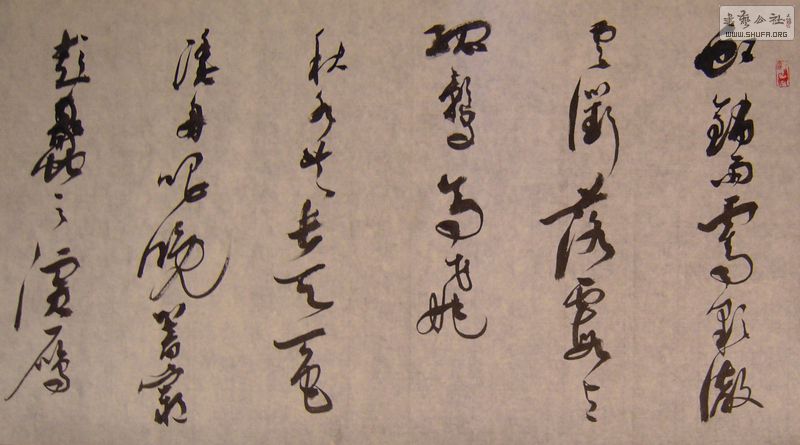 書藝公社
WWW.SHUFA.ORG
虹銷雨霽彩徹
云衢落霞与
孤鶩齊飛
秋水共長天一色
漁舟唱晚響窮
彭蠡之濱雁